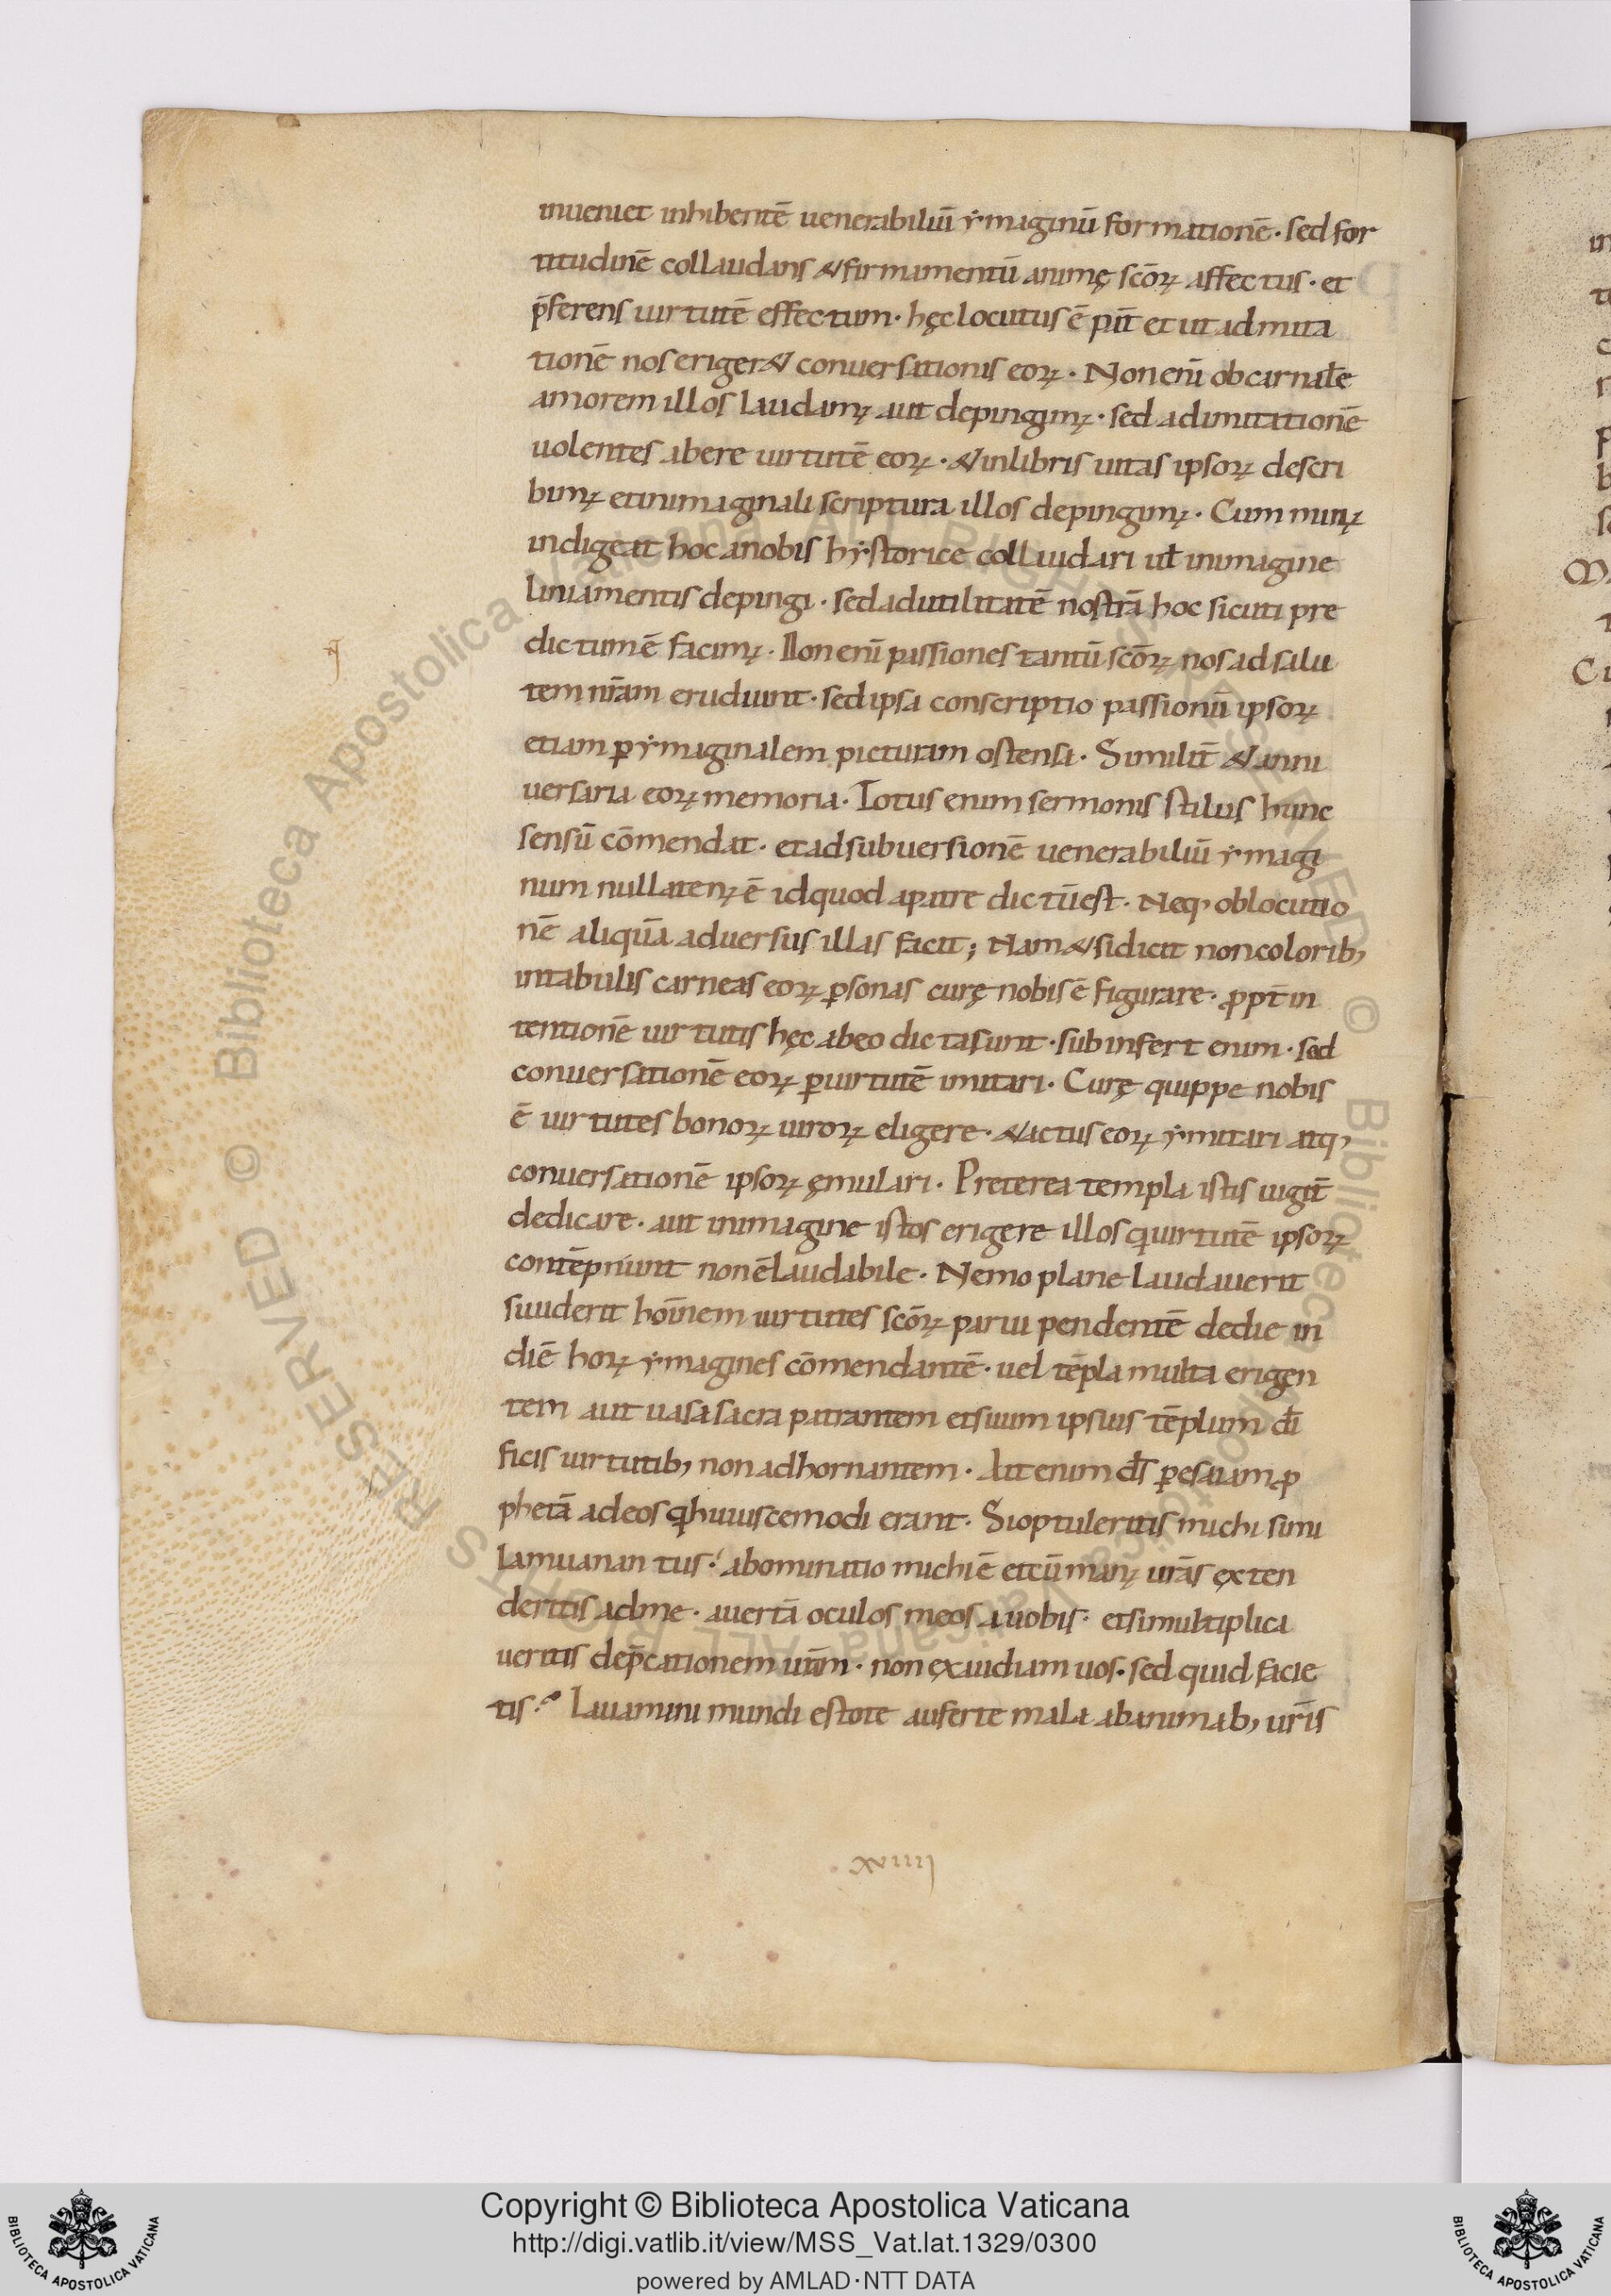 inueniet inhibentē uenerabiliū ẏmaginū formationē· sed for
titudinē collaudans & firmamentū animę scōꝝ affectus· et
p̄ferens uirtutē effectum· hęc locutus ē pat̄ et ut ad mita
tionē nos eriger& conuersationis eoꝝ· Non enī ob carnalē
amorem illos laudamꝰ aut depingimꝰ· sed ad imitationē
uolentes abere uirtutē eoꝝ· & in libris uitas ipsoꝝ descri
bimꝰ et in imaginali scriptura illos depingimꝰ· Cum minꝰ
indigeat hoc a nobis hẏstorice collaudari ut̄ in imagine
liniamentis depingi· sed ad utilitatē nostrā hoc sicuti pre
dictum ē facimꝰ· Non enī passiones tantū scōꝝ nos ad salu
tem nr̄am erudiunt· sed ipsa conscriptio passionū ipsoꝝ
etiam ꝑ ẏmaginalem picturam ostensa· Similit̄ & anni
uersaria eoꝝ memoria· Totus enim sermonis stilus hunc
sensū cōmendat· et ad subuersionē uenerabiliū ẏmagi
num nullatenꝰ ē id quod a patre dictū est· Neq, oblocutio
nē aliquā aduersus illas facit; Nam & si dicit non colorib,
in tabulis carneas eoꝝ ꝑsonas curę nobis ē figurare· ꝓpt̄ in
tentionē uirtutis hęc ab eo dicta sunt· subinfert enim· sed
conuersationē eoꝝ ꝑ uirtutē imitari· Curę quippe nobis
ē uirtutes bonoꝝ uiroꝝ eligere· & actus eoꝝ ẏmitari atq,
conuersationē ipsoꝝ ęmulari· Preterea templa istis iugit̄
dedicare· aut in imagine istos erigere illos q̇ uirtutē ipsoꝝ
contēpnunt non ē laudabile· Nemo plane laudauerit
suuderit hoīnem uirtutes scōꝝ parui pendentē de die in
diē hoꝝ ẏmagines cōmendantē· uel tēpla multa erigen
tem aut uasa sacra patrantem et suum ipsius tēplum dī
ficis uirtutib, non adhornantem· Ait enim ds̄ ꝑ esaiam ꝓ
phetā ad eos q̇ huiuscemodi erant· Si optuleritis michi simi
lam uanan tus· abominatio michi ē et cū manꝰ urā̄s exten
deritis ad me· auertā oculos meos a uobis· et si multiplica
ueritis dep̄cationem urā̄m· non exaudiam uos· sed quid facie
tis? Lauamini mundi estote auferte mala ab animab, ur̄is
xviiii
Copyright © Biblioteca Apostolica Vaticana
http://digi.vatlib.it/view/MSS_Vat.lat.1329/0300
powered by AMLAD·NTT DATA